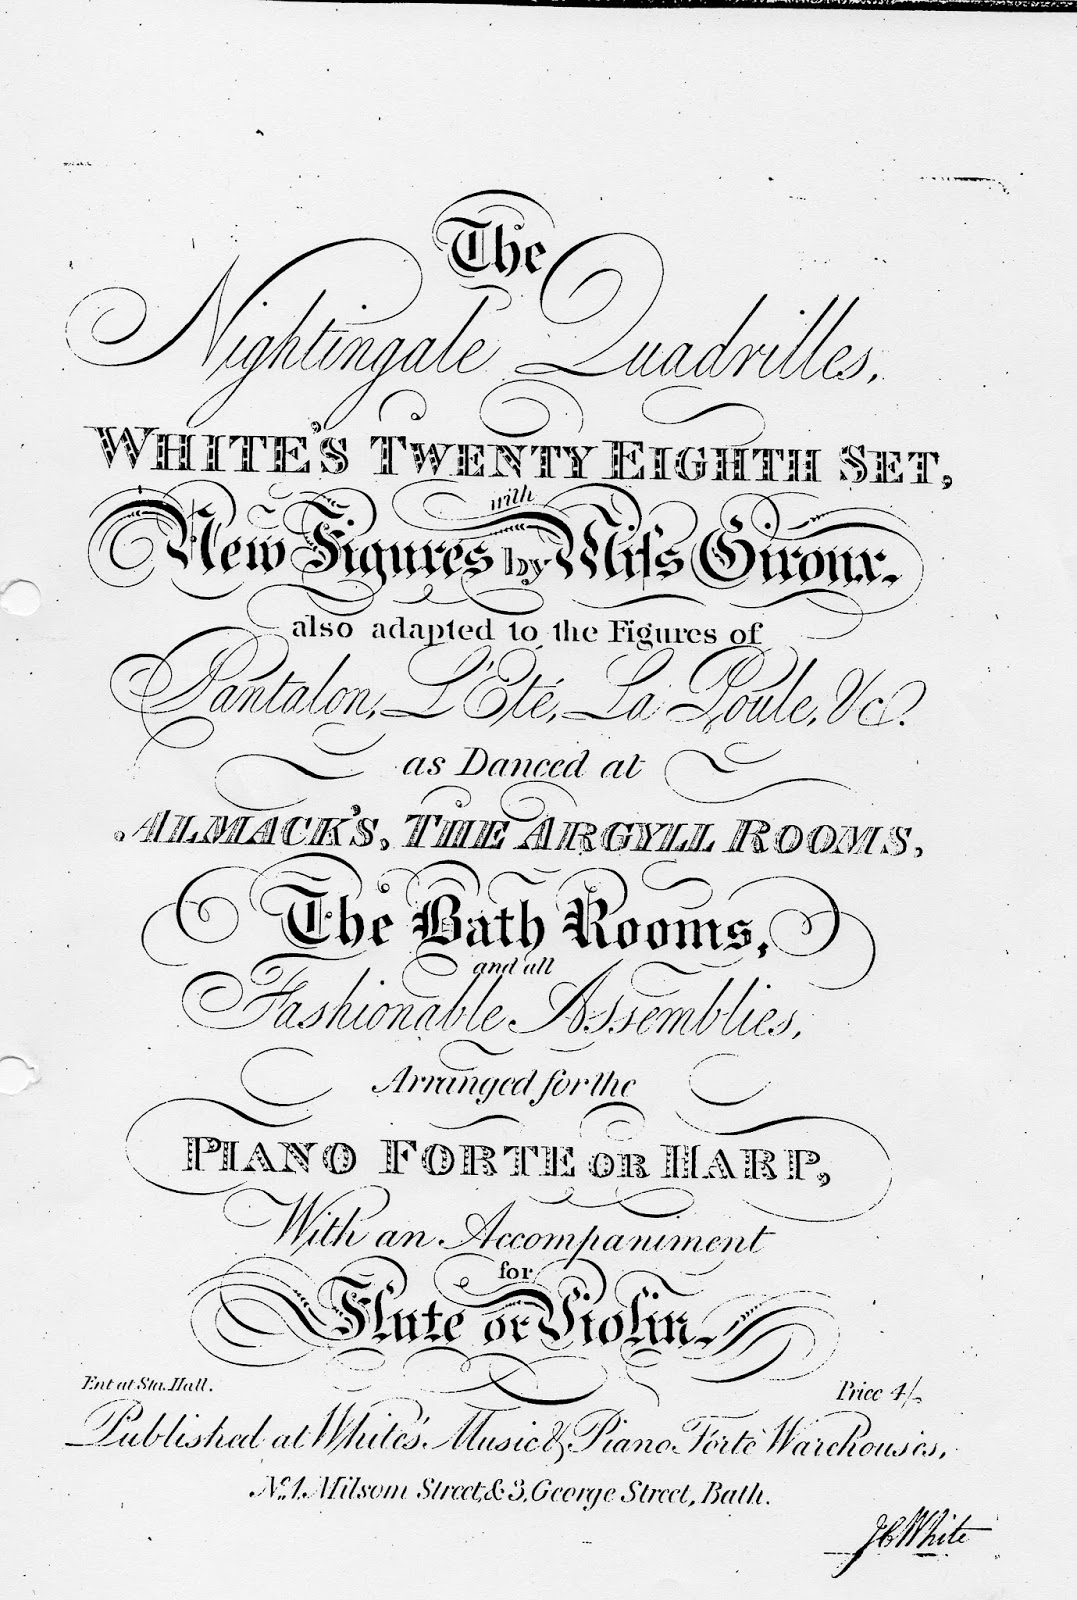 The
Nightingale Quadrilles,
WHITE'S TWENTY EIGHTH SET,
with
New Figures by Miſs Giroux.
also adapted to the Figures of
Pantalon, L'Eté, La Poule, &c.
as Danced at
ALMACK'S, THE ARGYLL ROOMS,
The Bath Rooms,
and all
Fashionable Assemblies,
Arranged for the
PIANO FORTE OR HARP,
With an Accompaniment
for
Flute or Violin.
Ent at Sta. Hall. Price 4/-
Published at White's Music & Piano Forte Warehouses,
No. 1, Milsom Street, & 3, George Street, Bath.
JC White